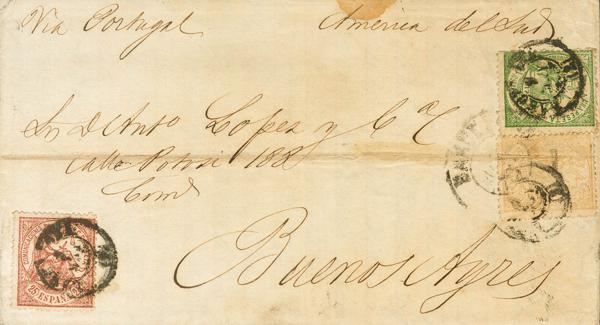 Via Portugal America del Sud
Sr. D. Anto. Lopez y Ca.
Calle Potosi 182
Buenos Ayres
25 ESPAÑA